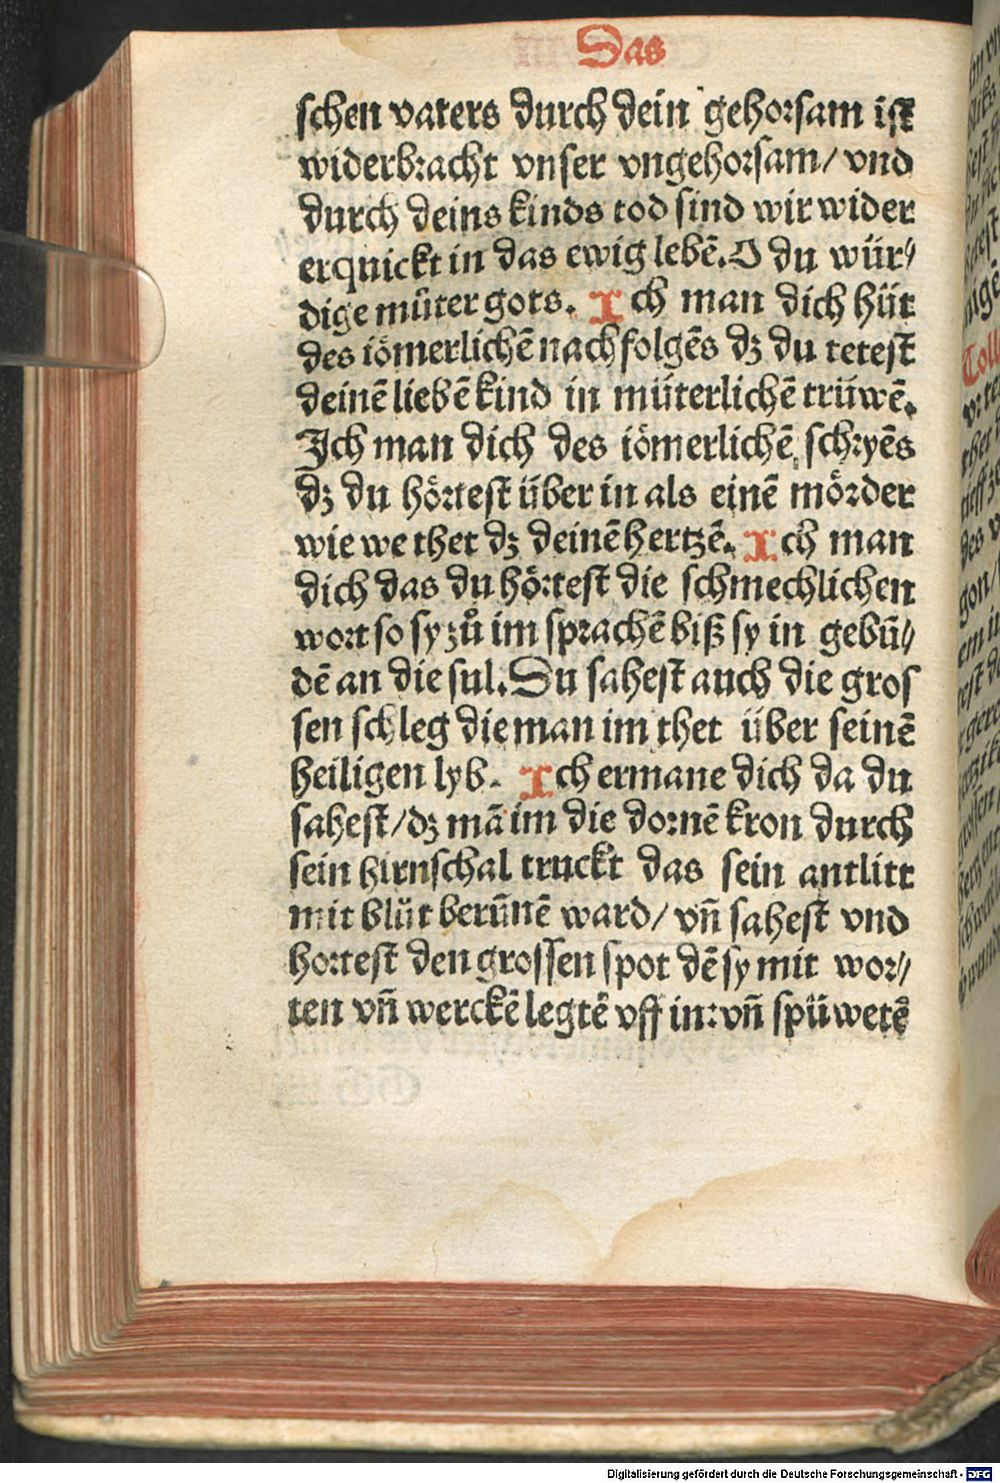 Das
schen vaters durch dein gehorsam ist
widerbracht vnser vngehorsam/ vnd
durch deins kinds tod sind wir wider
erquickt in das ewig lebē. O du wür⸗
dige můter gots. Ich man dich hüt
des iömerlichē nachfolgēs dʒ du tetest
deinē liebē kind in müterlichē trüwē.
Ich man dich des iömerlichē schryēs
dʒ du hörtest über in als einē mörder
wie we thet dʒ deinē hertzē. Ich man
dich das du hörtest die schmechlichen
wort so sy zů im sprachē biß sy in gebū⸗
dē an die sul. Du sahest auch die gros
sen schleg die man im thet über seinē
heiligen lyb. Ich ermane dich da du
sahest/ dʒ mā im die dornē kron durch
sein hirnschal truckt das sein antlitt
mit blůt berūnē ward/ vn̄ sahest vnd
hortest den grossen spot dē sy mit wor⸗
ten vn̄ werckē legtē vff in: vn̄ spüwetē
Digitalisierung gefördert durch die Deutsche Forschungsgemeinschaft - DFG